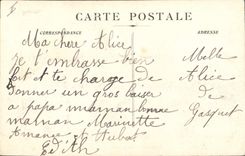 CARTE POSTALE
CORRESPONDANCE
ADRESSE
Ma chere Alice
Je t'embrasse bien
fort et te charge de
donner un gros baiser
a papa maman bonne
maman Marinette
Hubert
Edith
Melle
Alice
de
Gasquet